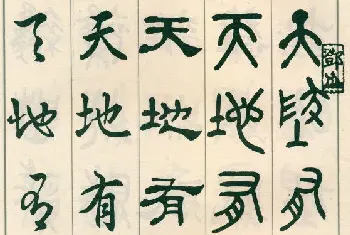 天地有
天地有
天地有
天地有
天地有